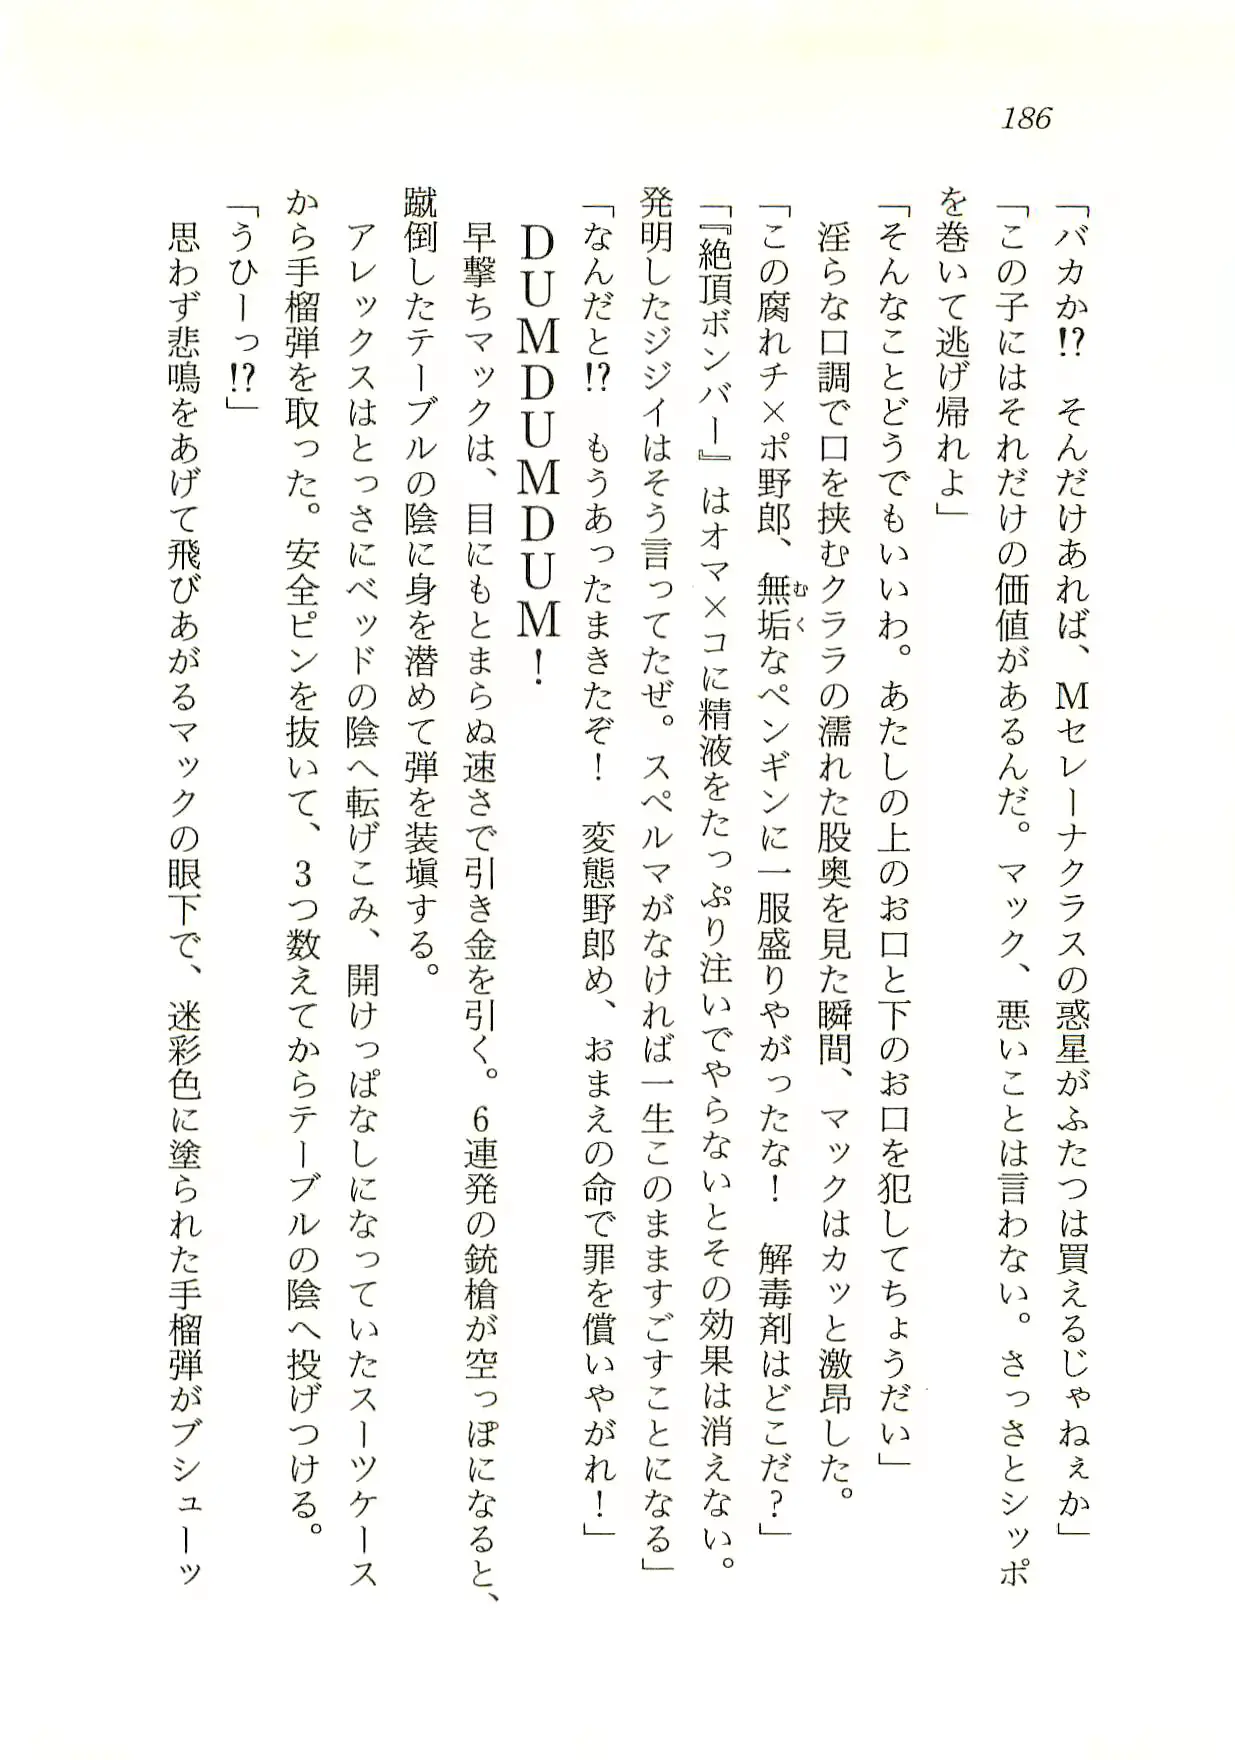 186
「バカか!?　そんだけあれば、Mセレーナクラスの惑星がふたつは買えるじゃねぇか」
「この子にはそれだけの価値があるんだ。マック、悪いことは言わない。さっさとシッポ
を巻いて逃げ帰れよ」
「そんなことどうでもいいわ。あたしの上のお口と下のお口を犯してちょうだい」
　淫らな口調で口を挟むクララの濡れた股奥を見た瞬間、マックはカッと激昂した。
「この腐れチ×ポ野郎、無垢なペンギンに一服盛りやがったな！　解毒剤はどこだ？」
「『絶頂ボンバー』はオマ×コに精液をたっぷり注いでやらないとその効果は消えない。
発明したジジイはそう言ってたぜ。スペルマがなければ一生このまますごすことになる」
「なんだと!?　もうあったまきたぞ！　変態野郎め、おまえの命で罪を償いやがれ！」
　DUMDUMDUM！
　早撃ちマックは、目にもとまらぬ速さで引き金を引く。6連発の銃槍が空っぽになると、
蹴倒したテーブルの陰に身を潜めて弾を装填する。
　アレックスはとっさにベッドの陰へ転げこみ、開けっぱなしになっていたスーツケース
から手榴弾を取った。安全ピンを抜いて、3つ数えてからテーブルの陰へ投げつける。
「うひーっ!?」
　思わず悲鳴をあげて飛びあがるマックの眼下で、迷彩色に塗られた手榴弾がブシューッ